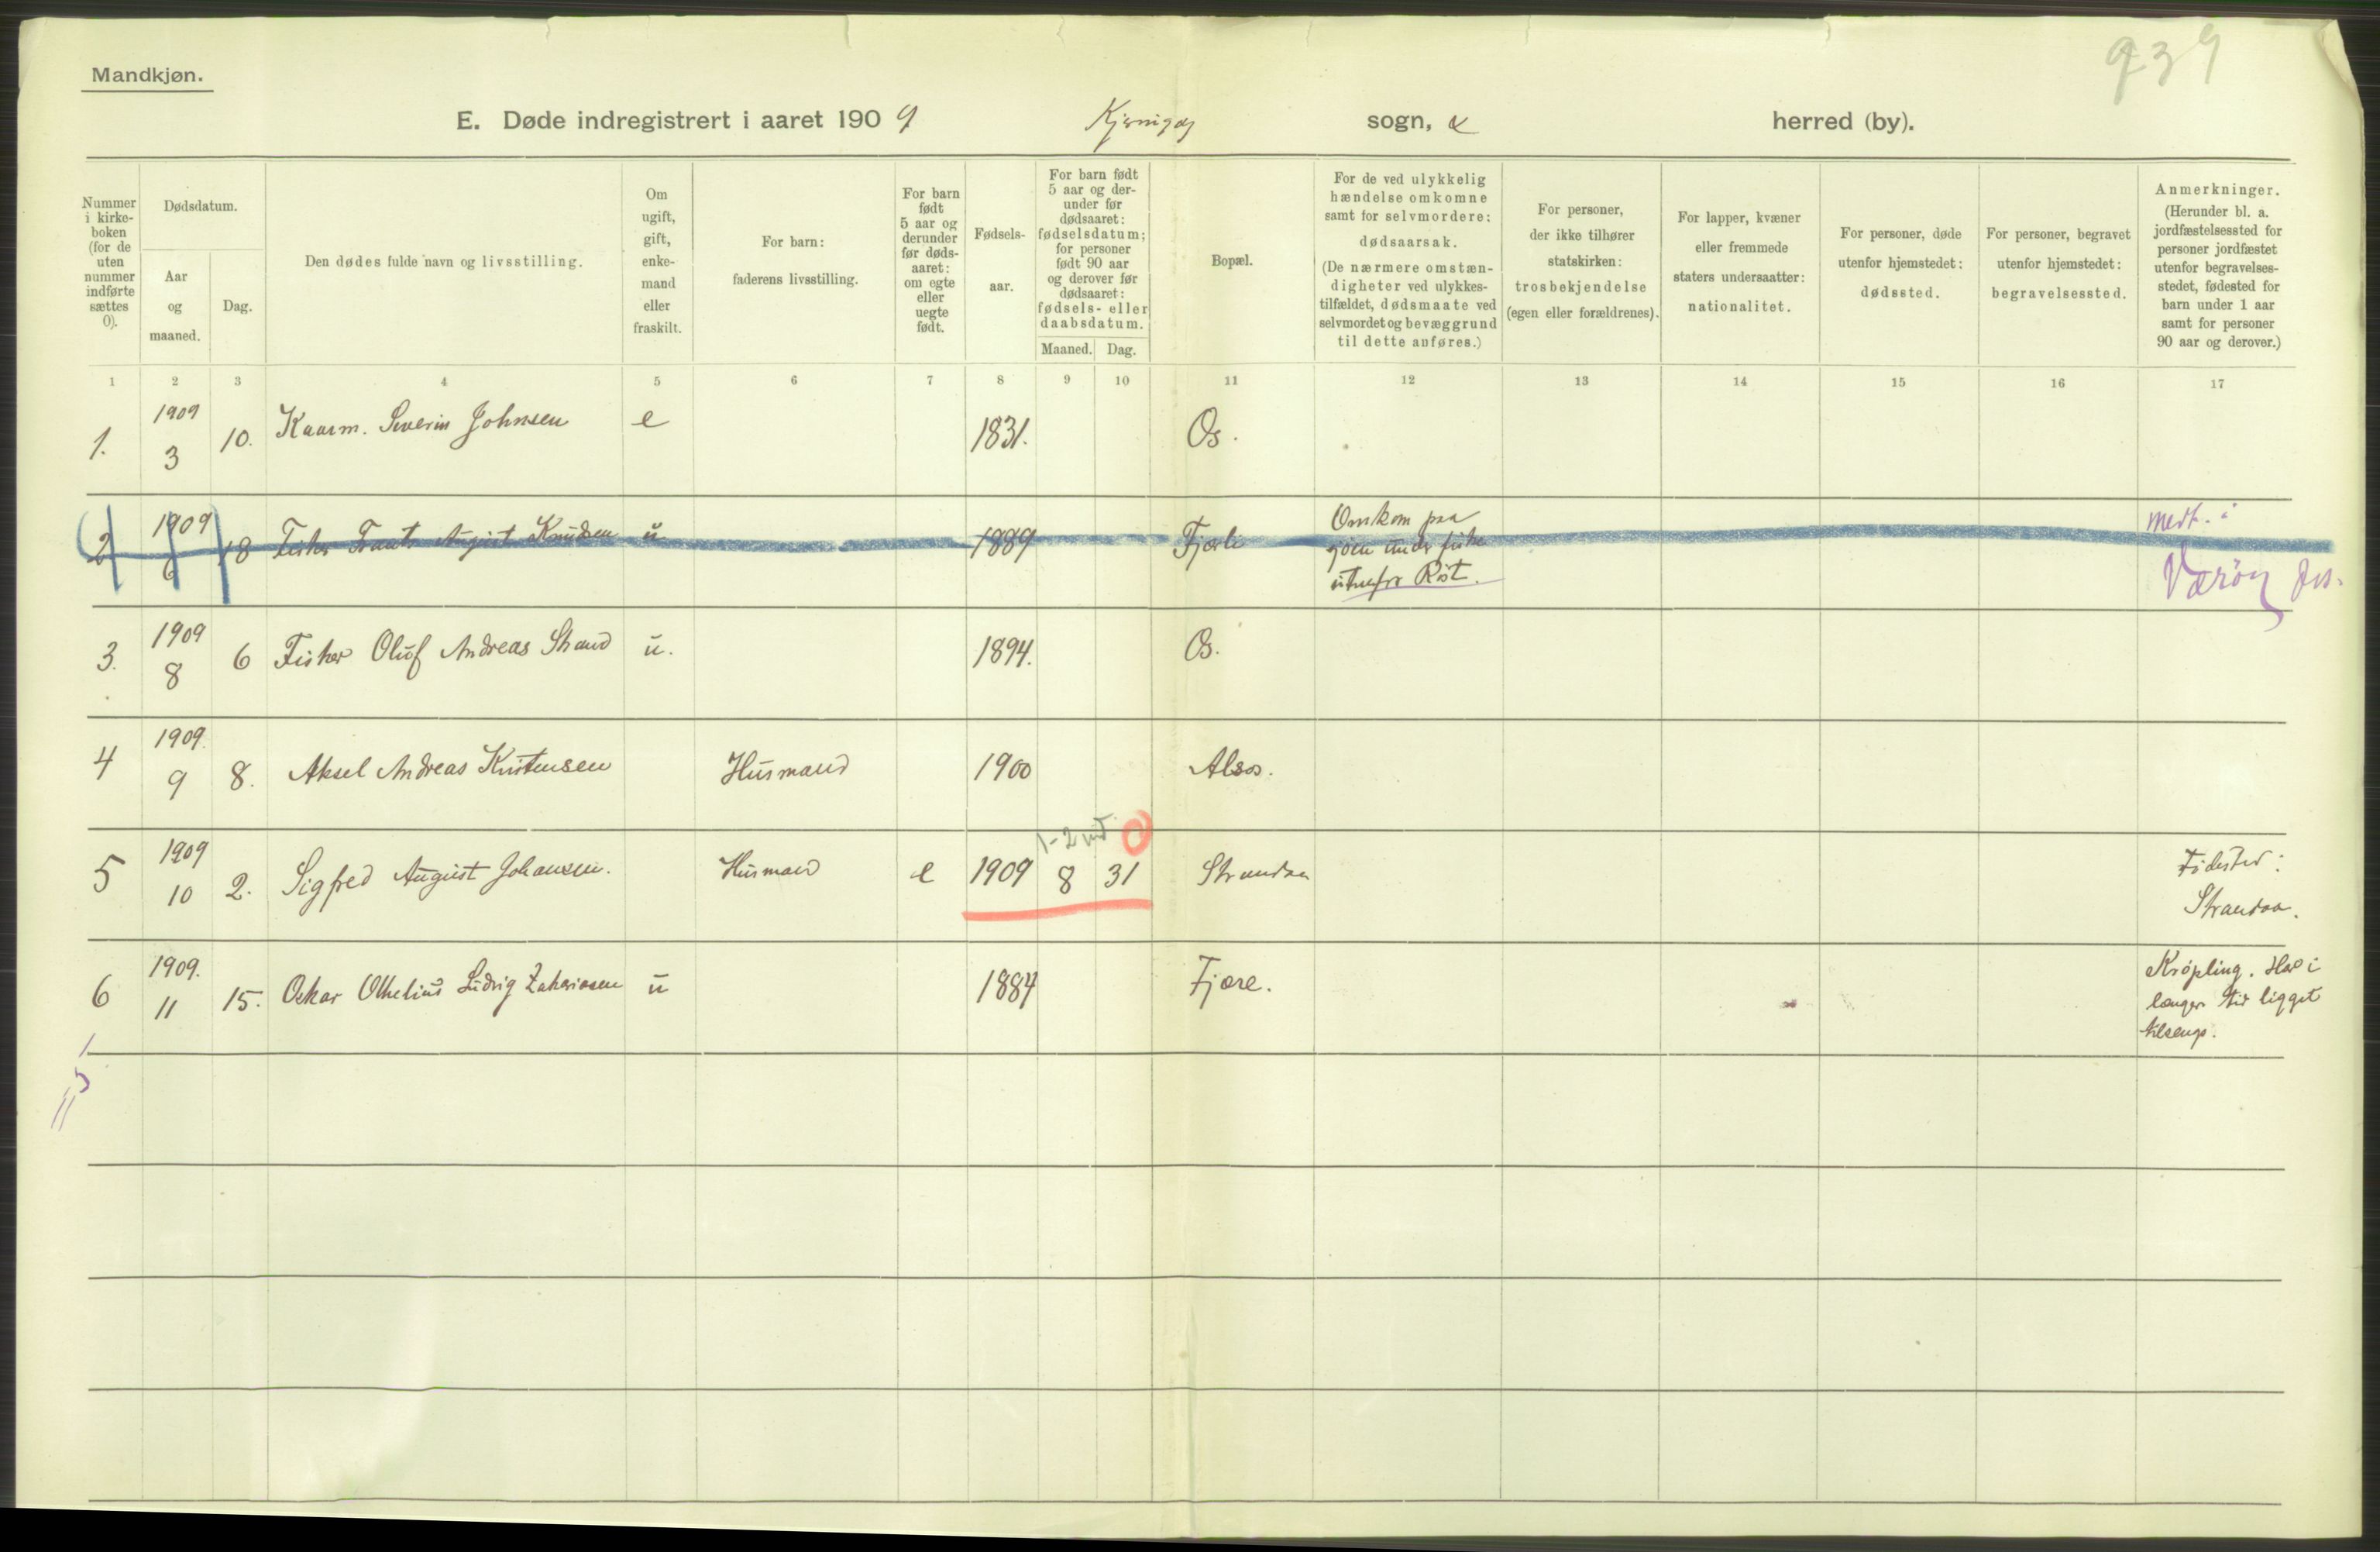 939
Mandkjøn.
E. Døde indregistrert i aaret 1909 Kjerringøy sogn, herred (by).
Nummer i kirke-boken (for de uten nummer indførte sættes 0).
Dødsdatum.
Aar og maaned.
Dag.
Den dødes fulde navn og livsstilling.
Om ugift, gift, enke-mand eller fraskilt.
For barn: faderens livsstilling.
For barn født 5 aar og derunder før døds-aaret: om egte eller uegte født.
Fødsels-aar.
For barn født 5 aar og der-under før dødsaaret: fødselsdatum; for personer født 90 aar og derover før dødsaaret: fødsels- eller daabsdatum.
Maaned. Dag.
Bopæl.
For de ved ulykkelig hændelse omkomne samt for selvmordere: dødsaarsak. (De nærmere omstæn-digheter ved ulykkes-tilfældet, dødsmaate ved selvmordet og bevæggrund til dette anføres.)
For personer, der ikke tilhører statskirken: trosbekjendelse (egen eller forældrenes).
For lapper, kvæner eller fremmede staters undersaatter: nationalitet.
For personer, døde utenfor hjemstedet: dødssted.
For personer, begravet utenfor hjemstedet: begravelsessted.
Anmerkninger. (Herunder bl. a. jordfæstelsessted for personer jordfæstet utenfor begravelses-stedet, fødested for barn under 1 aar samt for personer 90 aar og derover.)
1 2 3 4 5 6 7 8 9 10 11 12 13 14 15 16 17
1. 1909 3 10. Kaarm. Severin Johnsen e 1831. Os.
2 1909 6 18 Fisker Frants August Knudsen u 1889 Fjærli Omkom paa sjøen under fiske utenfor Røst. medt. i Værøy
3. 1909 8 6 Fisker Oluf Andreas Strand u. 1894. Os.
4 1909. 9 8. Aksel Andreas Kristensen Husmand 1900 Alsos.
1-2 md
5 1909 10 2. Sigfred August Johansen. Husmand e 1909 8 31 Strandaa Fødested: Strandaa.
6 1909. 11 15. Oskar Othelius Ludvig Zakariasen u 1884 Fjære. Krøpling. Har i længer tid ligget tilsengs.
5